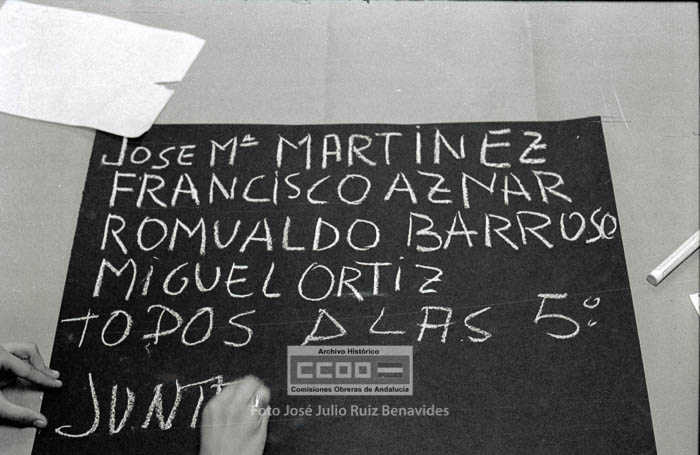 JOSE Mª MARTINEZ
FRANCISCO AZNAR
ROMUALDO BARROSO
MIGUEL ORTIZ
TODOS A LAS 5º
Archivo Histórico
CCOO
Comisiones Obreras de Andalucía
Foto José Julio Ruiz Benavides